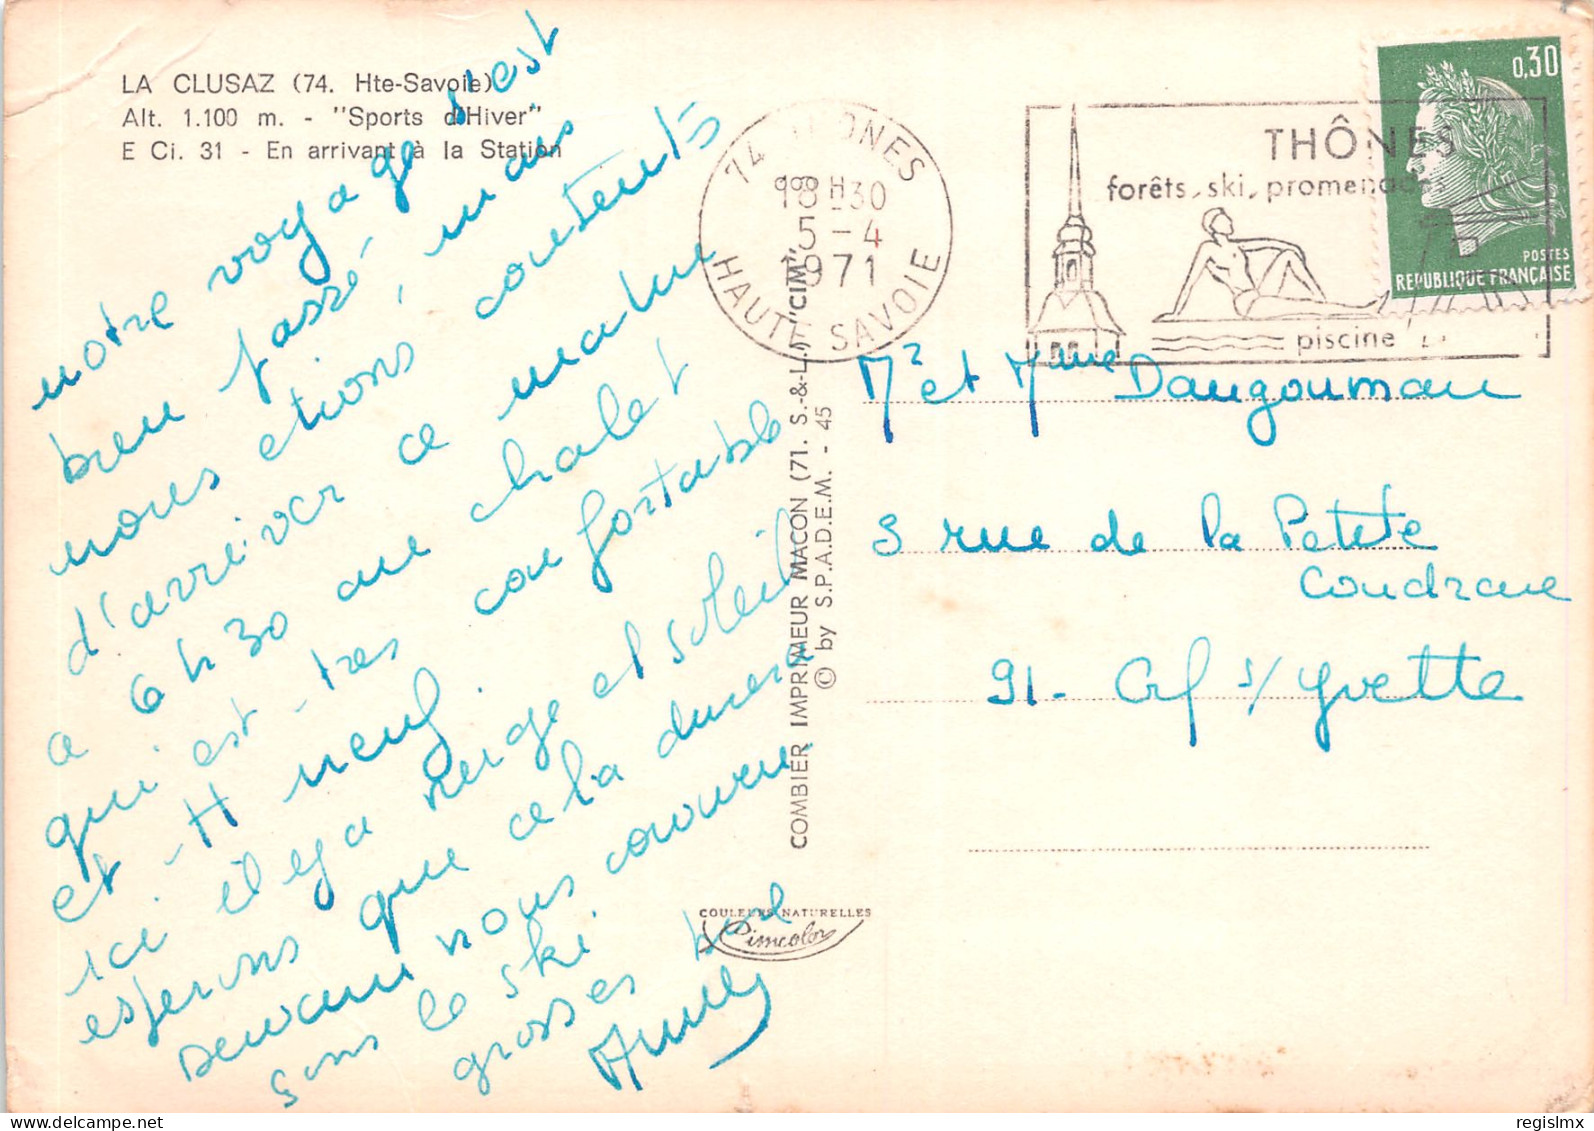 LA CLUSAZ (74. Hte-Savoie)
Alt. 1.100 m. - "Sports d'Hiver"
E Ci. 31 - En arrivant à la Station
notre voyage s'est
bien passé, mais
nous étions contents
d'arriver ce matin
a 6h30 au chalet
qui est très confortable
et neuf
ici il y a neige et soleil
espérons que cela durera
Demain nous courrons
sous le ski
grosses bises
Annie
COMBIER IMPRIMEUR MACON (71. S.-&-L.) "CIM"
© by S.P.A.D.E.M. - 45
COULEURS NATURELLES
Cimcolor
74 THONES
18H30
5-4
1971
HAUTE SAVOIE
THÔNES
forêts, ski, promenades
piscine
0,30
POSTES
REPUBLIQUE FRANÇAISE
Mr et Mme Dangouman
3 rue de la Petite
Coudraie
91- Gif s/ Yvette
regislmx
delcampe.net